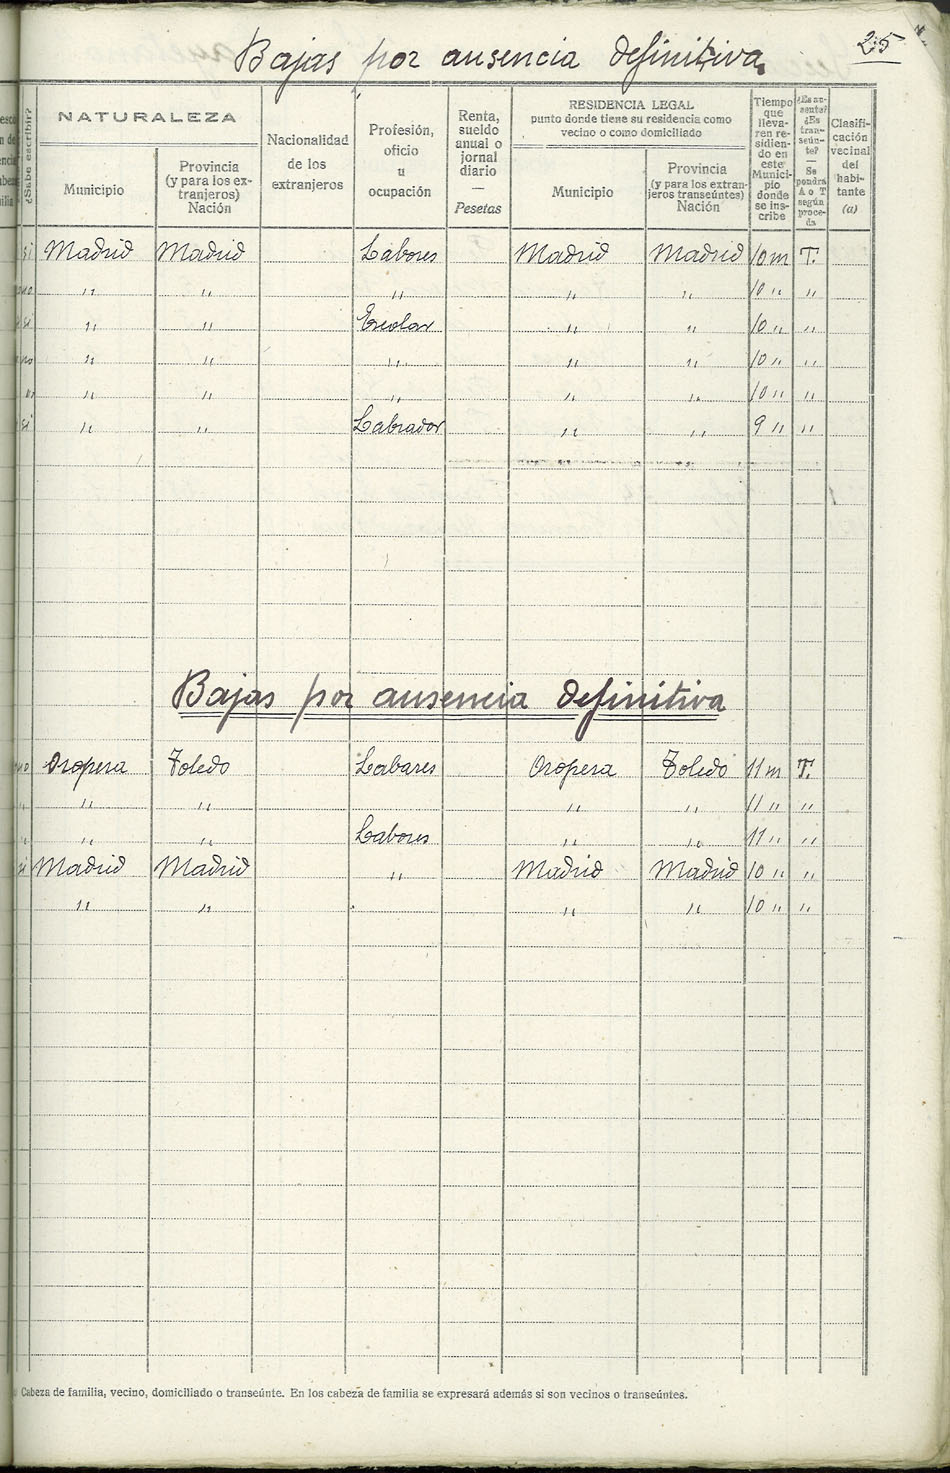 Bajas por ausencia definitiva
25
¿Sabe escribir?
NATURALEZA
Municipio
Provincia
(y para los ex-
tranjeros)
Nación
Nacionalidad
de los
extranjeros
Profesión,
oficio
u
ocupación
Renta,
sueldo
anual o
jornal
diario
—
Pesetas
RESIDENCIA LEGAL
punto donde tiene su residencia como
vecino o como domiciliado
Municipio
Provincia
(y para los extran-
jeros transeúntes)
Nación
Tiempo
que
lleva-
ren re-
sidien-
do en
este
Munici-
pio
donde
se ins-
cribe
¿Es au-
sente?
¿Es
tran-
seún-
te?
—
Se
pondrá
A o T
según
proce-
da
Clasifi-
cación
vecinal
del
habi-
tante
(a)
si Madrid Madrid Labores Madrid Madrid 10 m T.
no " " " " " 10 " "
si " " Escolar " " 10 " "
no " " " " " 10 " "
" " " " " " 10 " "
si " " Labrador " " 9 " "
Bajas por ausencia definitiva
no Oropera Toledo Labares Oropera Toledo 11 m T.
" " " " " 11 " "
" " " Labores " " 11 " "
si Madrid Madrid " Madrid Madrid 10 " "
" " " " 10 " "
Cabeza de familia, vecino, domiciliado o transeúnte. En los cabeza de familia se expresará además si son vecinos o transeúntes.